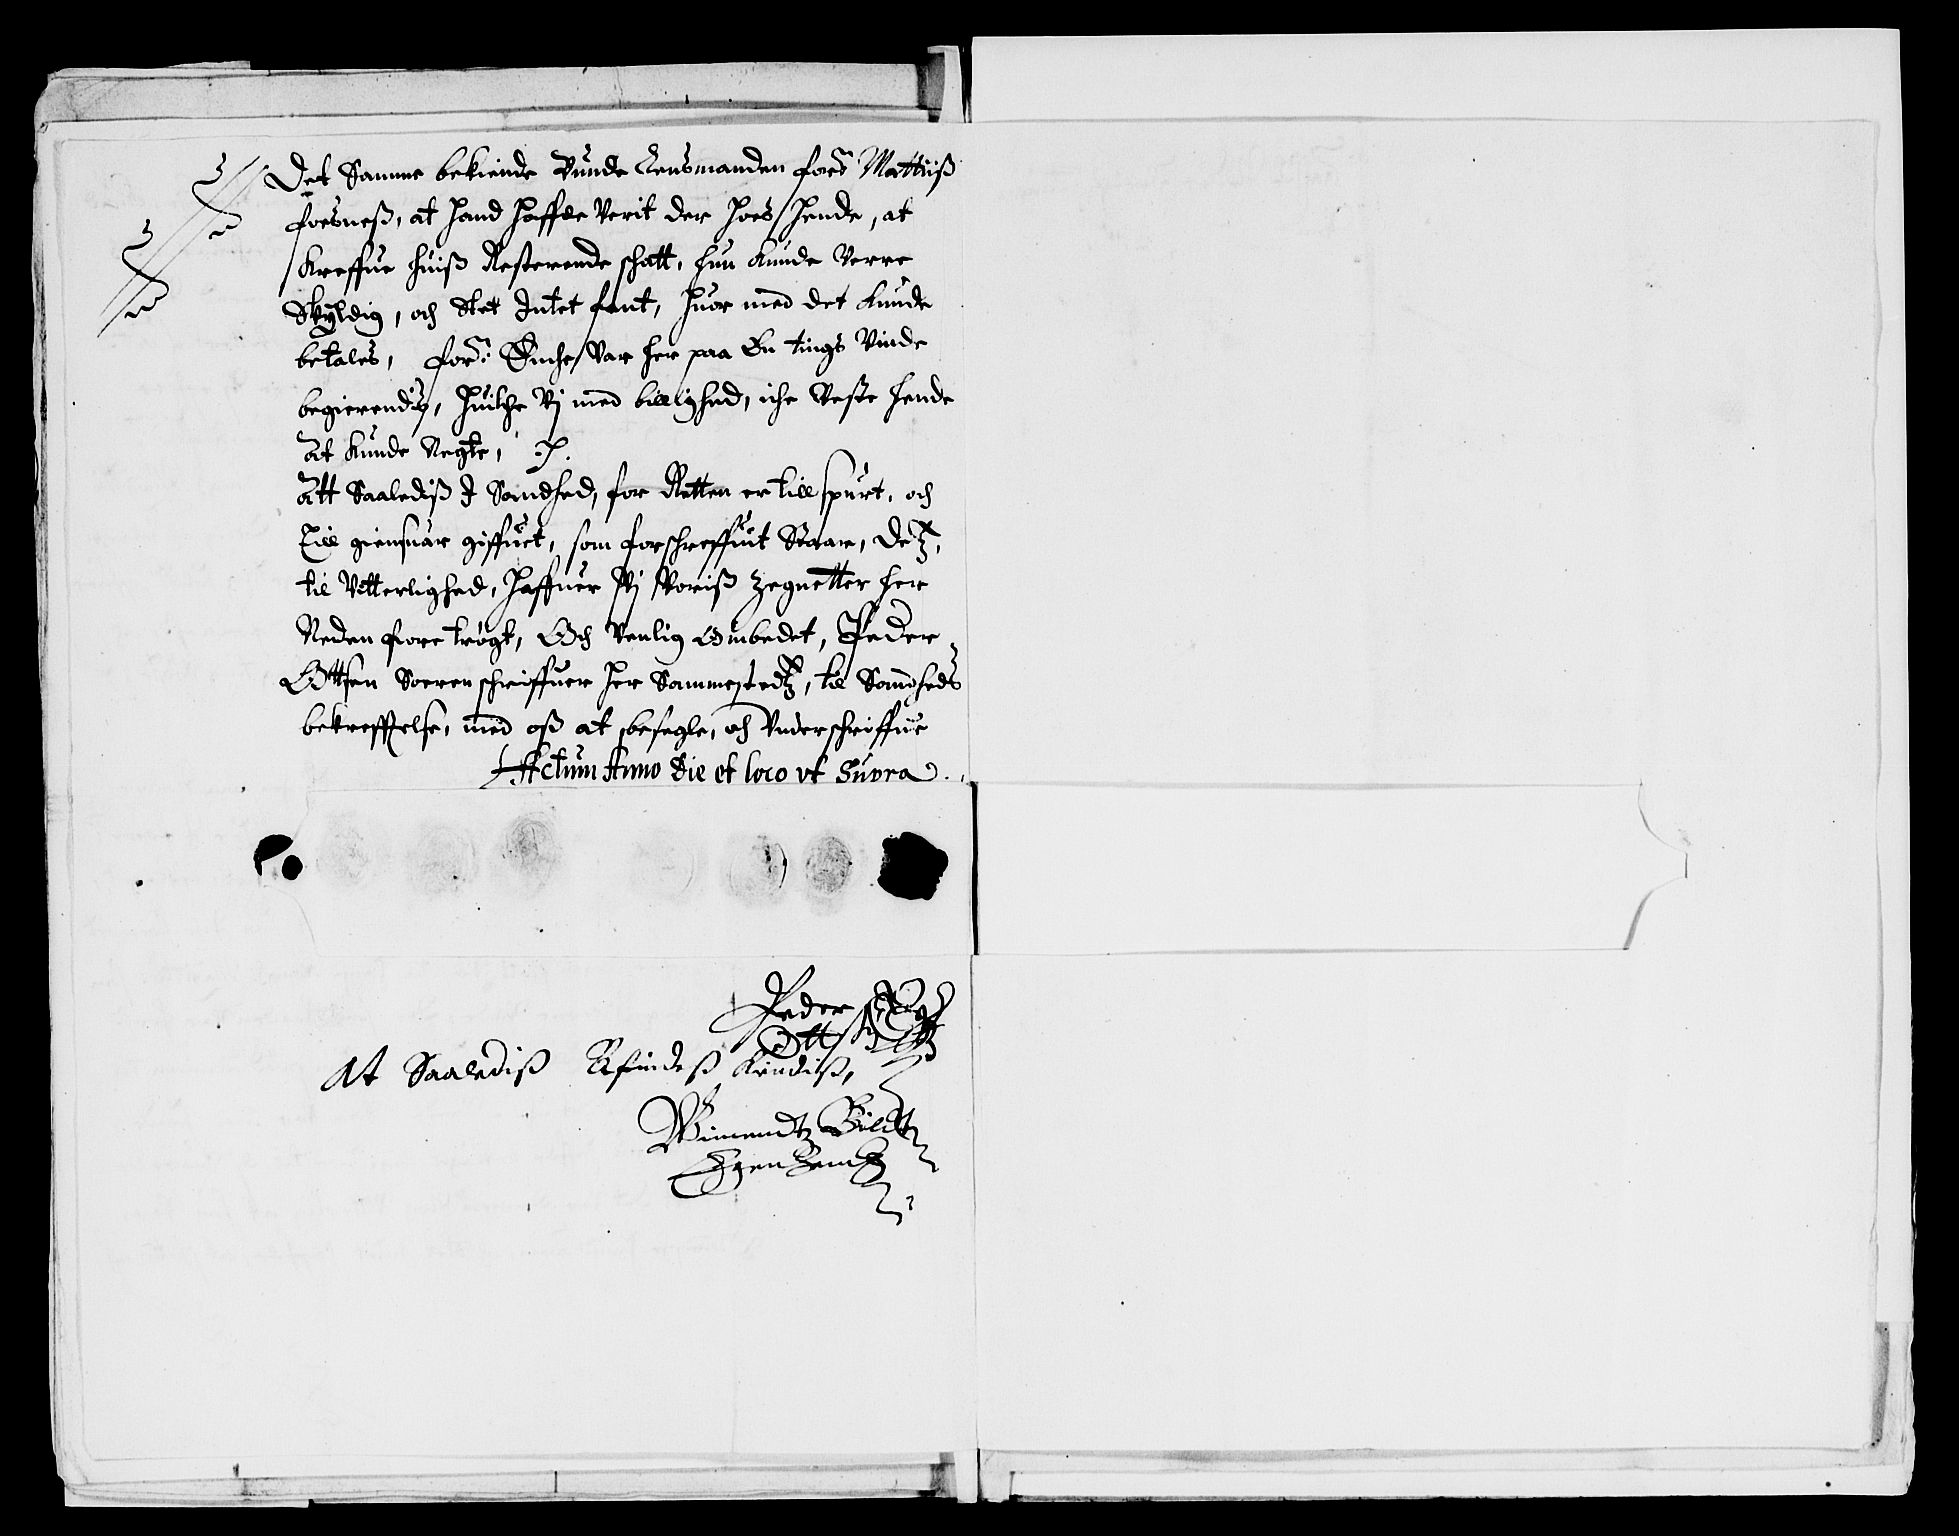 Det Samme bekiende Bunde Lensmanden fors: Mattiiß
foesneß, at hand haffde Verit der hoes hende, at
Kreffue huiß Resterende schatt, hun kunde Verre
Skyldig, och Slet Intet fant, huor med det kunde
betales, fors: Enche Var her paa En tings Vinde
begierendis, huilche Vj med billighed, iche Veste hende
at kunde Negte,
Att Saalediß I Sandhed, for Retten er till spurt, och
Till giensuar giffuet, som forschreffuit Staar, Detz,
til Vitterlighed, haffuer Wj Woriß Zegnetter her
Neden fore trögt, Och Venlig Ombedet, Peder
Ottsen Soeren schriffuer her Sammestedtz, til Sandheds
bekrefftelse, med oß at besegle, och Vnderschriffue
Actum Anno Die et loco vt Supra.
Peder
Ott
At Saalediß Befindeß Kindiß,
Wimendtz Bildt
Egen Handt